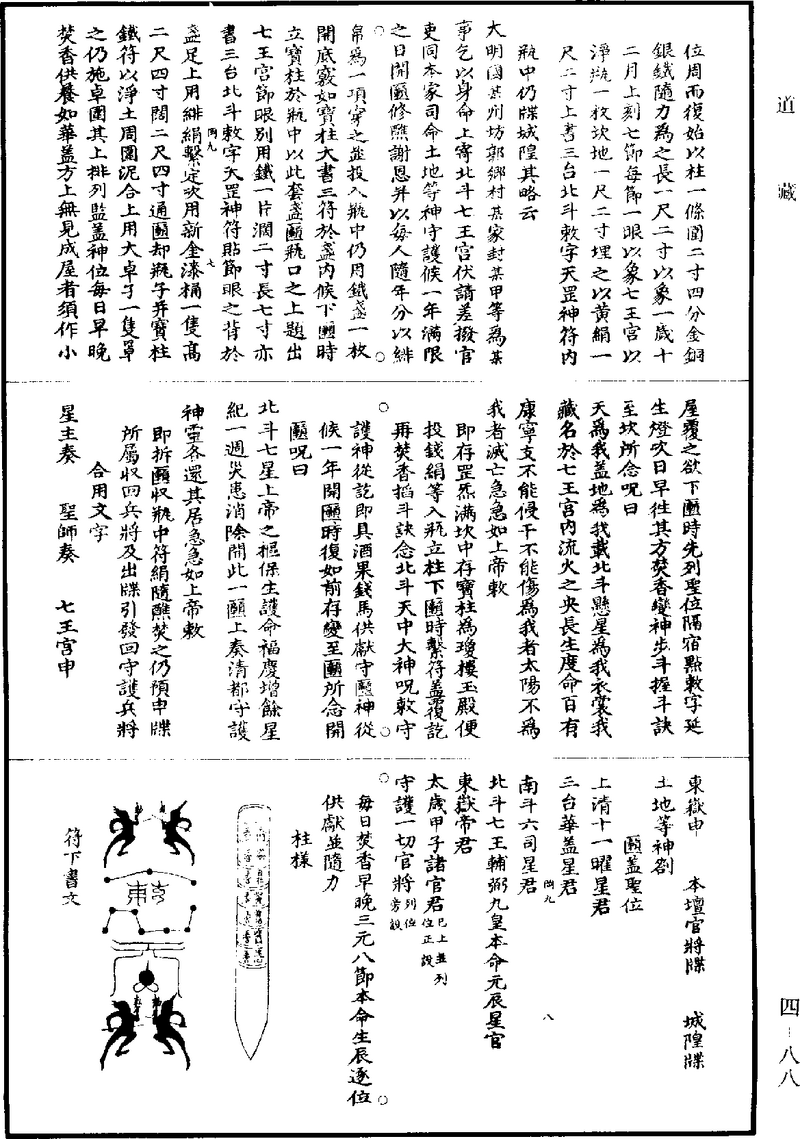 道藏
位周而復始以柱一條圍二寸四分金銅
銀鐵隨力為之長一尺二寸以象一歲十
二月上刻七節每節一眼以象七王宮以
淨瓶一枚坎地一尺二寸埋之以黃絹一
尺二寸上書三台北斗敕字天罡神符內
瓶中仍牒城隍其略云
大明國某州坊郭鄉村某家封某甲等為某
事乞以身命上寄北斗七王宮伏請差撥官
吏同本家司命土地等神守護候一年滿限
之日開圖修醮謝恩并以每人隨年分以緋
帛為一項穿之並投入瓶中仍用鐵盞一枚
開底竅如寶柱大書三符於盞內候下圖時
立寶柱於瓶中以此套盞圖瓶口之上題出
七王宮節眼別用鐵一片濶二寸長七寸亦
書三台北斗敕字天罡神符貼節眼之背於
盞足上用緋絹繫定次用新金漆桶一隻高
二尺四寸闊二尺四寸通圖却瓶子并寶柱
鐵符以淨土周圍泥合上用大卓子一隻罩
之仍施卓圍其上排列監蓋神位每日早晚
焚香供養如華蓋方上無見成屋者須作小
屋覆之欲下圖時先列聖位隔宿點敕字延
生燈次日早往其方焚香變神步斗握斗訣
至坎所念呪曰
天為我蓋地為我載北斗懸星為我衣裳我
藏名於七王宮內流火之央長生度命百有
康寧支不能侵干不能傷為我者太陽不為
我者滅亡急急如上帝敕
即存罡炁滿坎中存寶柱為瓊樓玉殿便
投錢絹等入瓶立柱下圖時繫符蓋覆訖
再焚香搯斗訣念北斗天中大神呪敕守
護神從訖即具酒果錢馬供獻守圖神從
候一年開圖時復如前存變至圖所念開
圖呪曰
北斗七星上帝之樞保生護命福慶增餘星
紀一週災患消除開此一圖上奏清都守護
神靈各還其居急急如上帝敕
即拆圖收瓶中符絹隨醮焚之仍預申牒
所屬收回兵將及出牒引發回守護兵將
合用文字
星主奏 聖師奏 七王宮申
東嶽申 本壇官將牒 城隍牒
土地等神劄
圖蓋聖位
上清十一曜星君
三台華蓋星君
南斗六司星君
北斗七王輔弼九皇本命元辰星官
東嶽帝君
太歲甲子諸官君已上並列位正設
守護一切官將列位旁設
每日焚香早晚三元八節本命生辰逐位
供獻並隨力
柱樣
符下書文
四－八八